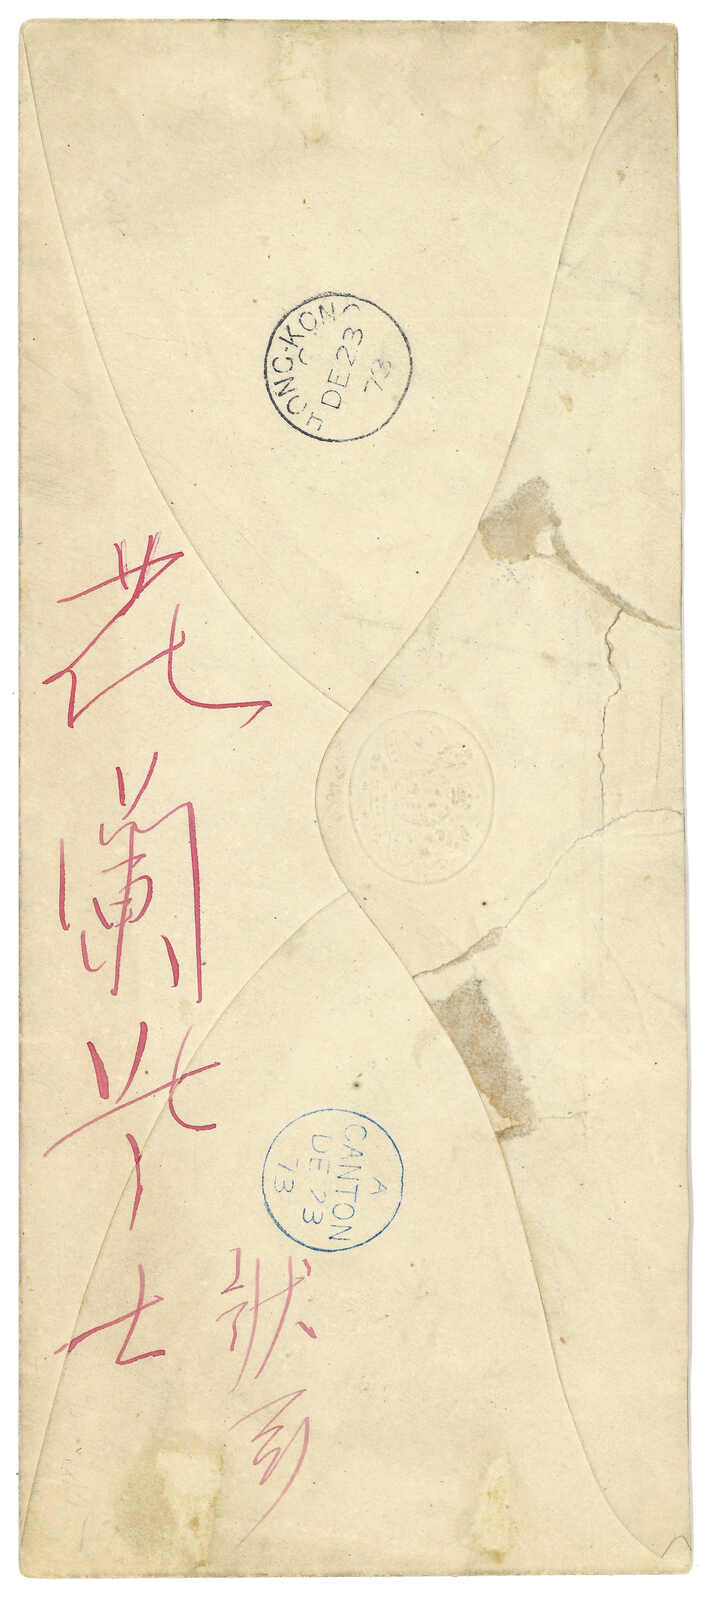 HONG-KONG
C
DE 23
73
花蘭士
狀
A
CANTON
DE 23
73